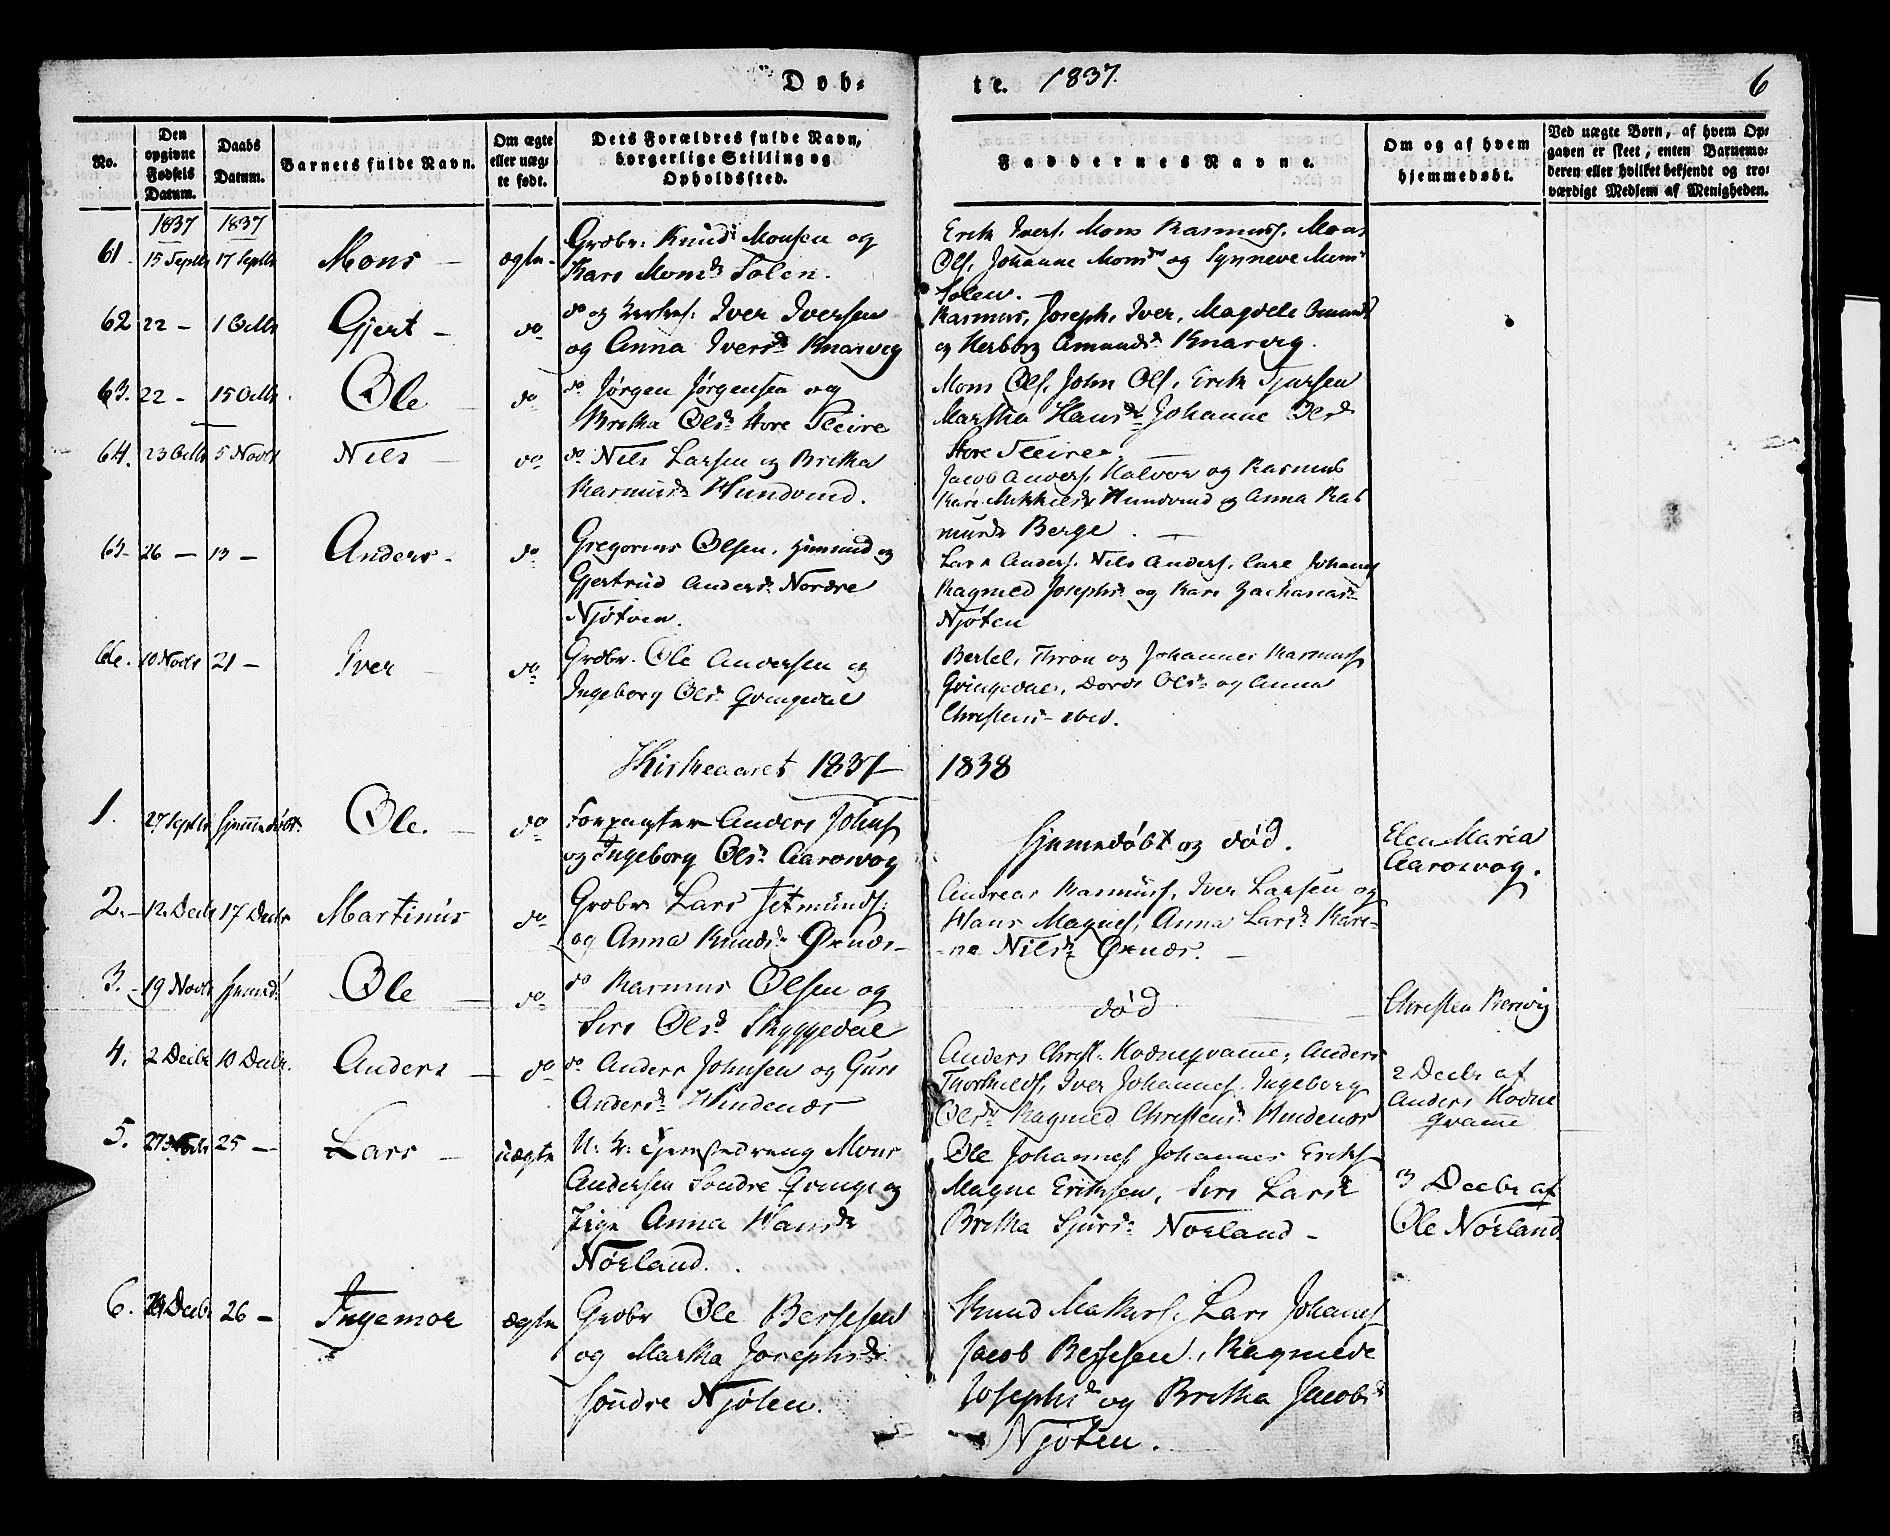 Døb-
te. 1837.
6
No.
Den opgivne Fødsels Datum.
Daabs Datum.
Barnets fulde Navn.
Om ægte eller uægte født.
Dets Forældres fulde Navn, borgerlige Stilling og Opholdssted.
Faddernes Navne.
Om og af hvem hjemmedøbt.
Ved uægte Børn, af hvem Opgaven er skeet, enten Barnemoderen eller hvilket bekjendt og troværdigt Medlem af Menigheden.
1837 1837
61. 15 Septbr 17 Septbr Mons ægte Grdbr: Knud Monsen og
Kari Monsdr Solen.
Erik Ivers. Mons Rasmuss. Mons
Ols. Johanne Monsdr og Synneve Mons
Solen.
62 22 - 1 Octbr Gjert do do og Iver Iversen
og Anna Iversdr Knarvig
Rasmus, Joseph, Iver, Magdele
og Herborg Amundsdr Knarvig.
63. 22 - 15 Octbr Ole do do Jørgen Jørgensen og
Britha Olsdr Store Steire
Mons Ols. John Ols. Erik
Martha Hansdr Johanne Olsdr
Store Steire.
64. 23 Octbr 5 Novbr Nils do do Nils Larsen og Britha
Rasmusdr Hundvind.
Jacob Anders. Halvor og Rasmus
Kari Mikkelsdr Hundvind og Anna Ras
musdr Berge.
65 26 - 13 - Anders do Gregorius Olsen, Huusmd og
Gjertrud Andersdr Nordre
Njøten.
Lars Anders. Nils Anders. Johanns
Ragned Josephsdr og Kari Zachariasdr
Njøten
66. 10 Novbr 21 - Iver do Grdbr. Ole Andersen og
Ingeborg Olsdr Qvingedal
Bertel, Thron og Johannes Rasmuss
Qvingedal, Dorde Olsdr og Anna
Christens- ibid.
Kirkeaaret 1837- 1838
1. 27 Septbr Hjemmedøbt. Ole. do Forpagter Anders Johns
og Ingeborg Olsdr Aarovog
Hjemmedøbt og død.
Elen Maria
Aarovog.
2. 12 Decbr 17 Decbr Martinus do Grdbr Lars Jetmunds:
og Anna Knudsdr Øxnæs
Andreas Rasmuss. Iver Larsen og
Hans Magnes. Anna Larsdr Kari-
ne Nilsdr Øxnæs.
3. 19 Novbr Ole do do Rasmus Olsen og
Siri Olsdr Skyggedal
død
Christen
4. 2 Decbr 10 Decbr. Anders do do Anders Johnsen og Guri
Andersdr Hindenæs
Anders Christ. Kodneqvamme, Anders
Thorkilds. Iver Johannes. Ingeborg
Olsdr Ragned Christensdr Hindenæs
2 Decbr af
Anders Kodne
qvamme
5. 25 - Lars uægte U: K: Tjenstedreng Mons
Andersen Søndre Qvinge og
Pige Anna Hansdr
Nørland.
Ole Johannes. Johannes Eriks
Magne Eriksen, Siri Larsdr
Britha Sjursdr Nørland
3 Decbr af
Ole Nørland.
6. Decbr 26 - Ingemor ægte Grdbr Ole Bersesen
og Martha Josephsdr
Søndre Njøten.
Knud Lars Johanns
Jacob Bersesen, Ragnede
Josephsdr og Britha Jacobsdr
Njøten.